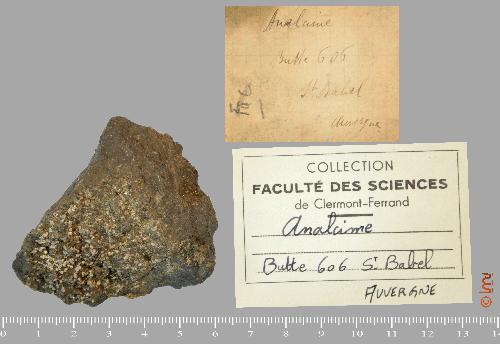 Analcime
Butte 606
St Babel
Auvergne
COLLECTION
FACULTÉ DES SCIENCES
de Clermont-Ferrand
Analcime
Butte 606 St Babel
AUVERGNE
0 1 2 3 4 5 6 7 8 9 10 11 12 13 14